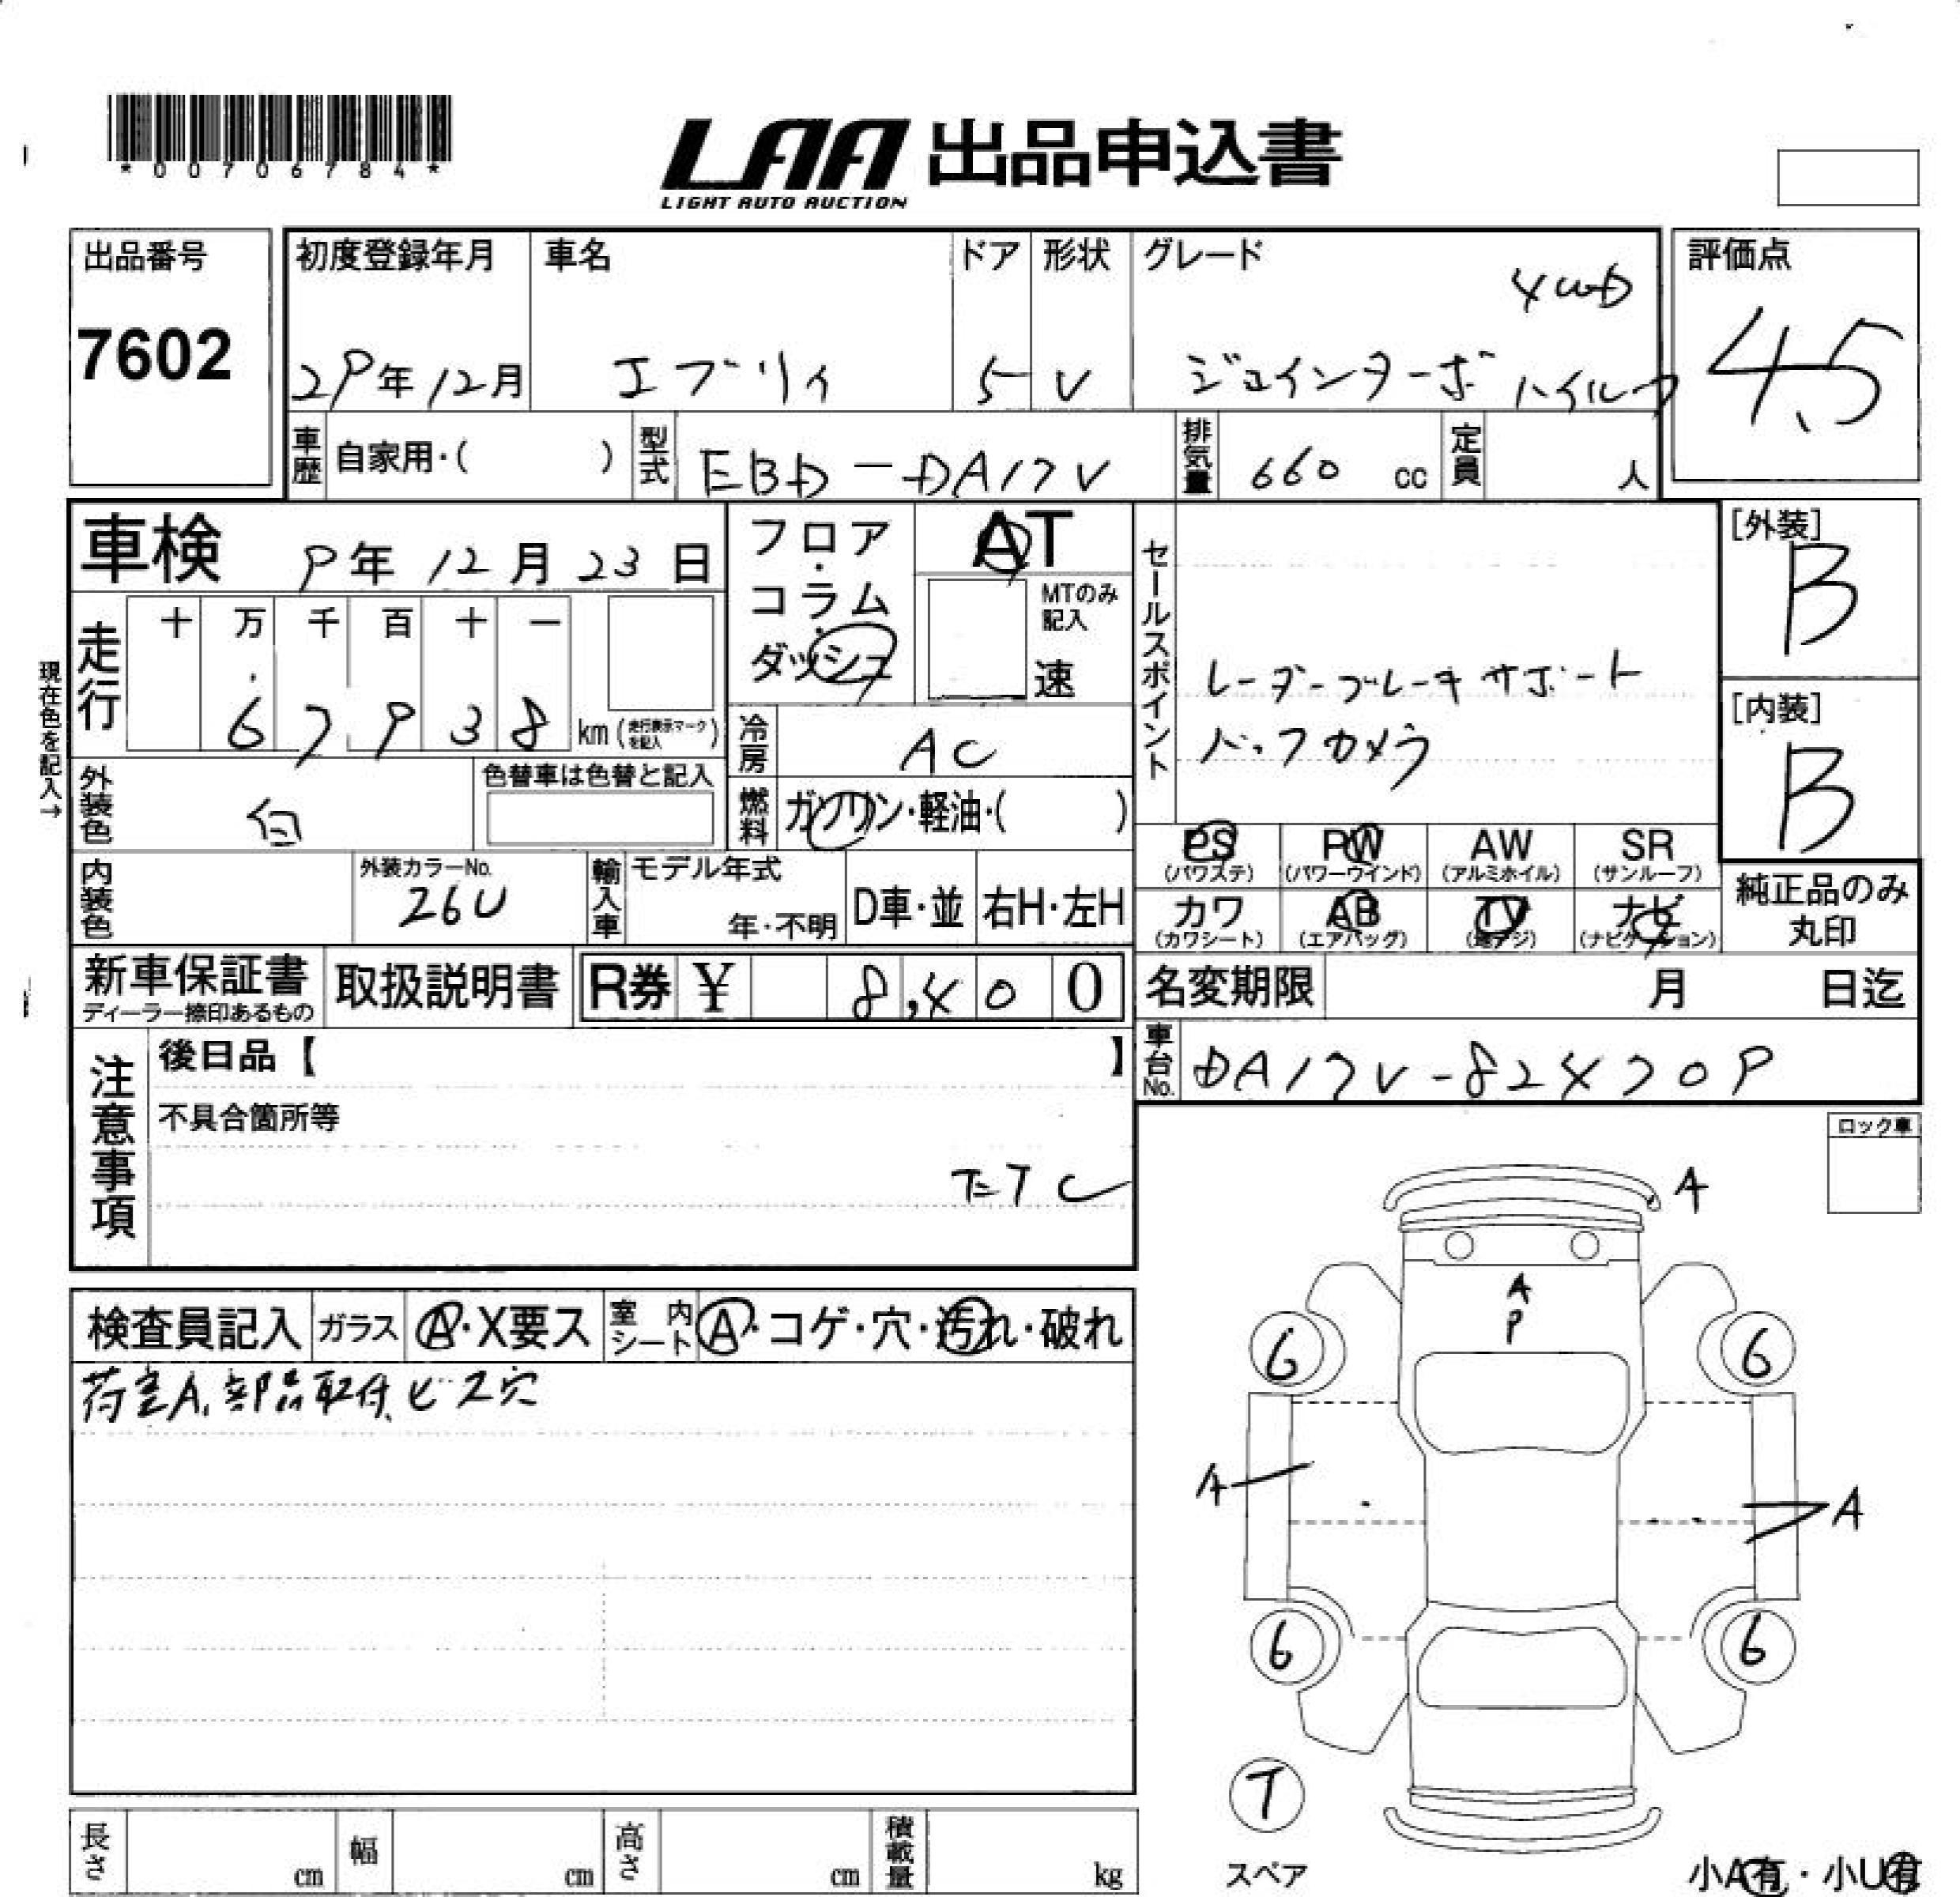 *00706784*
LAA 出品申込書
LIGHT AUTO AUCTION
出品番号
7602
初度登録年月
29年12月
車名
エブリィ
ドア
5
形状
V
グレード
4WD
ジョインターボ ハイルーフ
評価点
4.5
車歴 自家用・( )
型式 EBD-DA17V
排気量 660 cc
定員 人
車検 9年12月23日
フロア・コラム・ダッシュ
AT
MTのみ記入
速
走行 十 万 千 百 十 一
67938 km (走行表示マークを記入)
現在色を記入→
冷房 AC
外装色 白
色替車は色替と記入
燃料 ガソリン・軽油・( )
セールスポイント
レーダーブレーキサポート
バックカメラ
[外装]
B
[内装]
B
内装色
外装カラーNo.
26U
輸入車
モデル年式
年・不明
D車・並
右H・左H
PS (パワステ)
PW (パワーウインド)
AW (アルミホイル)
SR (サンルーフ)
カワ (カワシート)
AB (エアバッグ)
TV (地デジ)
ナビ (ナビゲーション)
純正品のみ
丸印
新車保証書
ディーラー捺印あるもの
取扱説明書
R券 ¥ 8,400
名変期限 月 日迄
車台No. DA17V-824709
注意事項
後日品【 】
不具合箇所等
ETC
ロック車
検査員記入
ガラス A・X要ス
室内シート A・コゲ・穴・汚れ・破れ
荷室A、部品取付ビス穴
A
A
P
6
6
A
A
6
6
T
スペア
小A有・小U有
長さ cm
幅 cm
高さ cm
積載量 kg